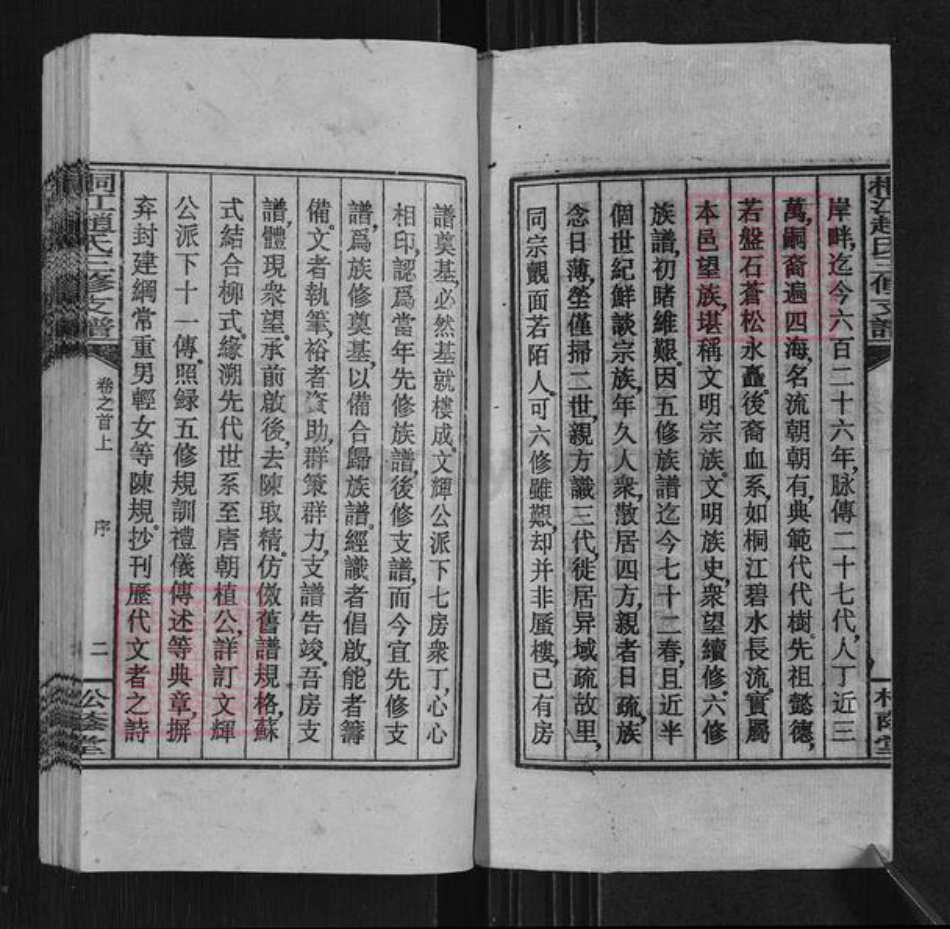 岸畔，迄今六百二十六年，脉傳二十七代，人丁近三
萬，嗣裔遍四海，名流朝朝有，典範代代樹。先祖懿德，
若盤石蒼松永矗，後裔血系，如桐江碧水長流。實屬
本邑望族，堪稱文明宗族。文明族史，衆望續修。六修
族譜，初睹維艱。因五修族譜迄今七十二春，且近半
個世紀鮮談宗族，年久人衆，散居四方，親者日疏，族
念日薄，塋僅掃二世，親方識三代，徙居异域疏故里，
同宗觀面若陌人。可六修雖艱，却并非蜃樓，已有房
桐江趙氏三修支譜
卷之首上
序
二
譜奠基，必然基就樓成。文輝公派下七房衆丁，心心
相印，認爲當年先修族譜，後修支譜，而今宜先修支
譜，爲族修奠基，以備合歸族譜。經識者倡啟，能者籌
備。文者執筆，裕者資助，群策群力，支譜告竣。吾房支
譜，體現衆望。承前啟後，去陳取精。仿傚舊譜規格，蘇
式結合柳式。緣溯先代世系至唐朝植公，詳訂文輝
公派下十一傳。照録五修規訓禮儀傳述等典章，摒
弃封建綱常重男輕女等陳規。抄刊歷代文者之詩